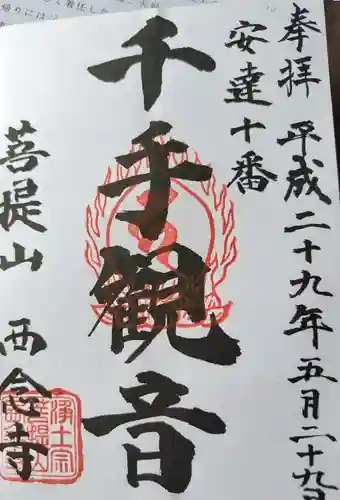 奉拝 平成二十九年五月二十九日
安達十番
千手観音
菩提山 西念寺
浄土宗